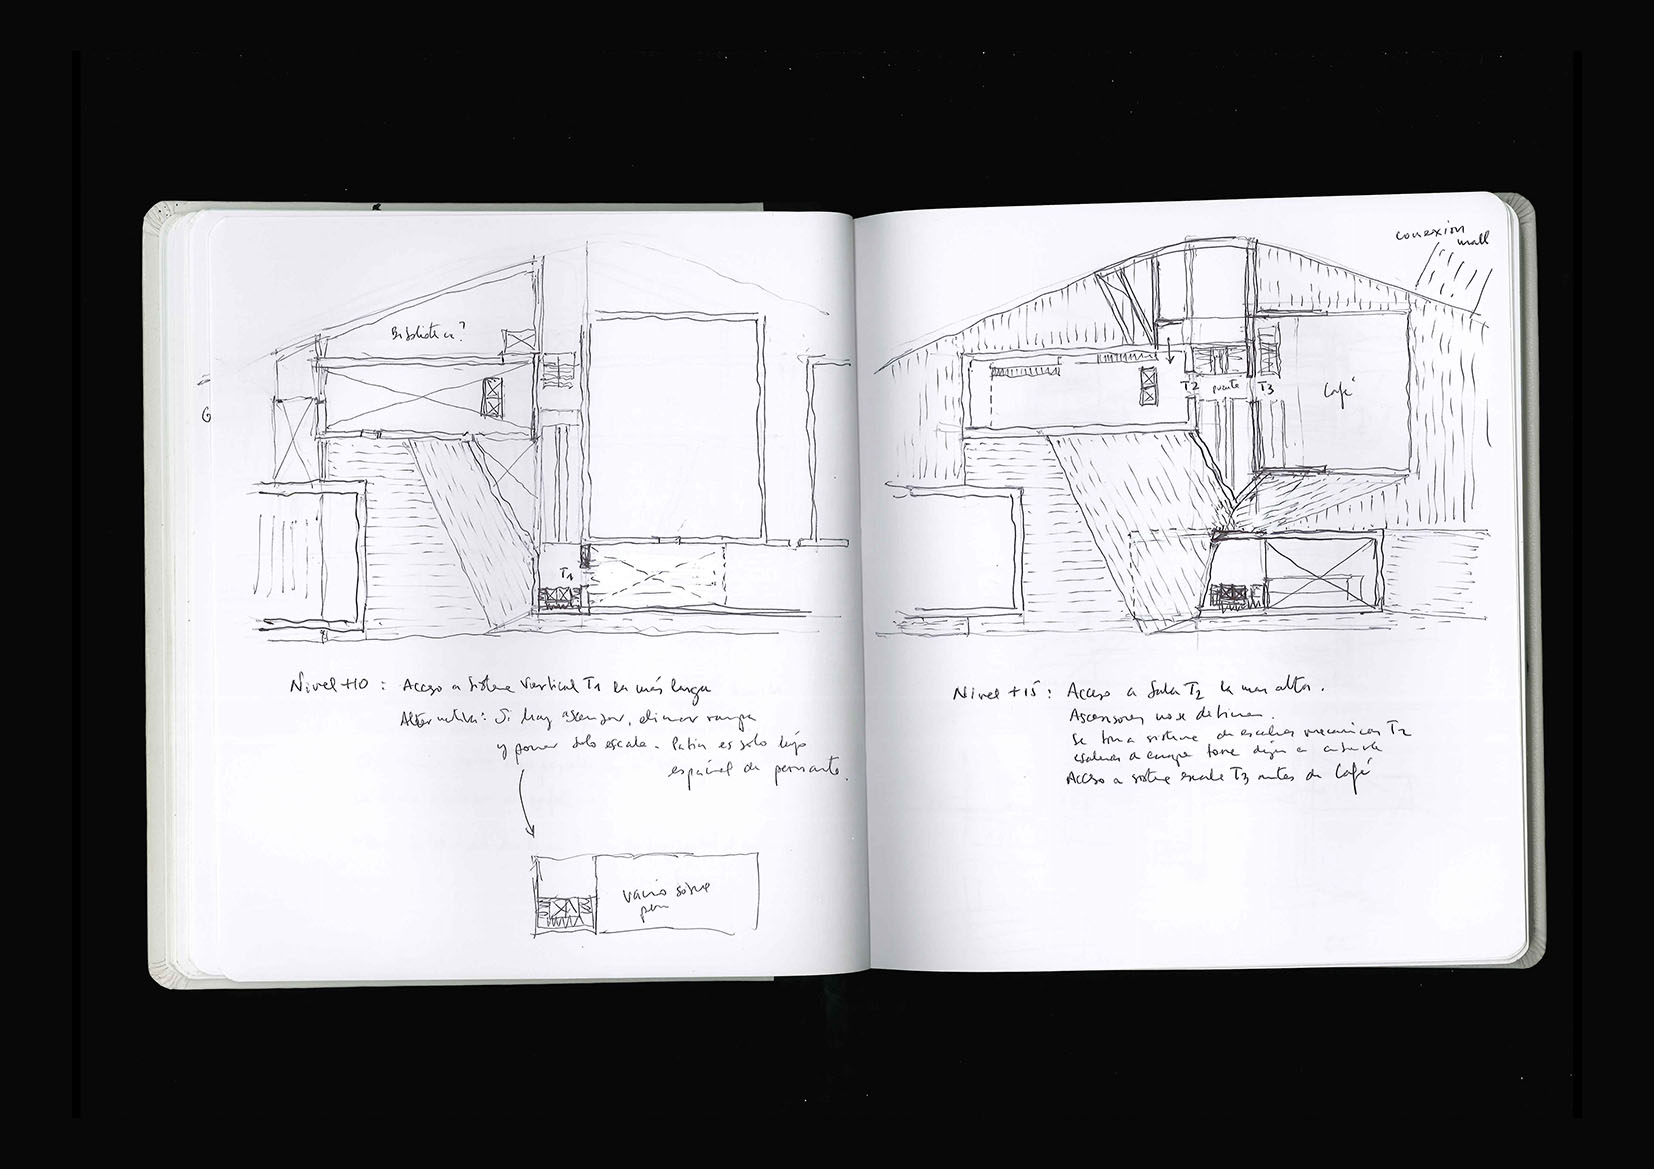 Biblioteca?
G
T1
Nivel +10 : Acceso a sistema vertical T1 la más larga
Alternativa: Si hay ascensor, eliminar rampa
y poner solo escala. Patin es solo
espacial de
vacío sobre
conexion
mall
T2 puente T3
Café
Nivel +15 : Acceso a Sala T2 la mas alta.
Ascensores no se detienen.
Se toma sistema de escaleras mecanicas T2
escaleras de escape torre
Acceso a sistema escala T3 antes de Café